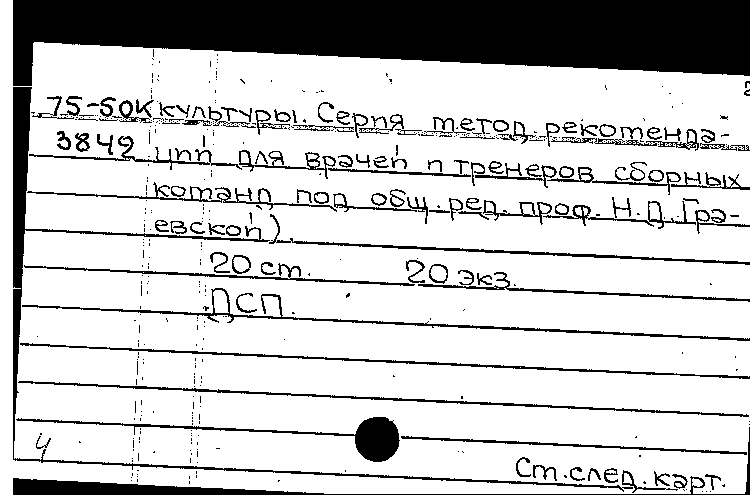 2
75-50К культуры. Серия метод. рекоменда-
3849 ций для врачей и тренеров сборных
команд под общ. ред. проф. Н.Д. Гра-
евской).
20 ст. 20 экз.
ДСП.
4
См. след. карт.